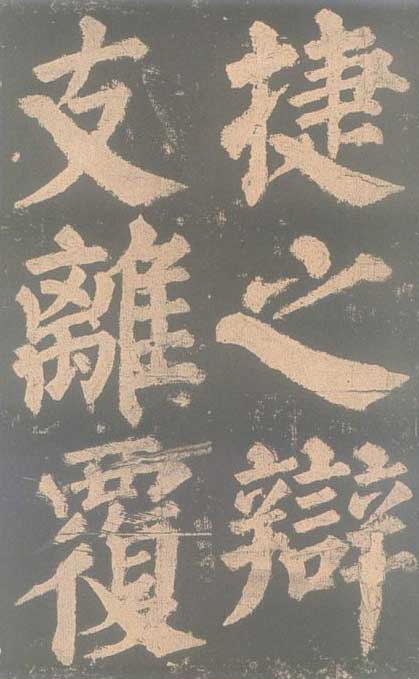 捷之辯
支離覆